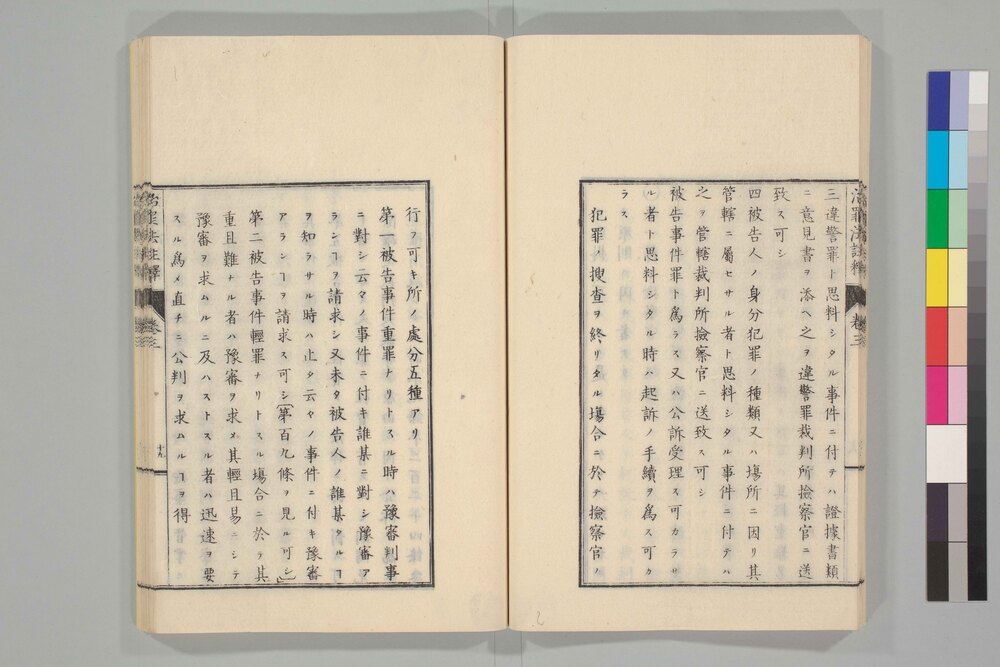 治罪法註釋 卷三
三違警罪ト思料シタル事件ニ付テハ證據書類
ニ意見書ヲ添ヘ之ヲ違警罪裁判所撿察官ニ送
致ス可シ
四被告人ノ身分犯罪ノ種類又ハ塲所ニ因リ其
管轄ニ屬セサル者ト思料シタル事件ニ付テハ
之ヲ管轄裁判所撿察官ニ送致ス可シ
被告事件罪ト爲ラス又ハ公訴受理ス可カラサ
ル者ト思料シタル時ハ起訴ノ手續ヲ爲ス可カ
ラス
犯罪ノ搜査ヲ終リタル塲合ニ於テ撿察官ノ
行フ可キ所ノ處分五種アリ
第一被告事件重罪ナリトスル時ハ豫審判事
ニ對シ云々ノ事件ニ付キ誰某ニ對シ豫審ア
ランヿヲ請求シ又未タ被告人ノ誰某タルヿ
ヲ知ラサル時ハ止タ云々ノ事件ニ付キ豫審
アランヿヲ請求ス可シ(第百九條ヲ見ル可シ)
第二被告事件輕罪ナリトスル塲合ニ於テ其
重且難ナル者ハ豫審ヲ求メ其輕且易ニシテ
豫審ヲ求ムルニ及ハストスル者ハ迅速ヲ要
スル爲メ直チニ公判ヲ求ムルヿヲ得
治罪法註釋 卷三 十九